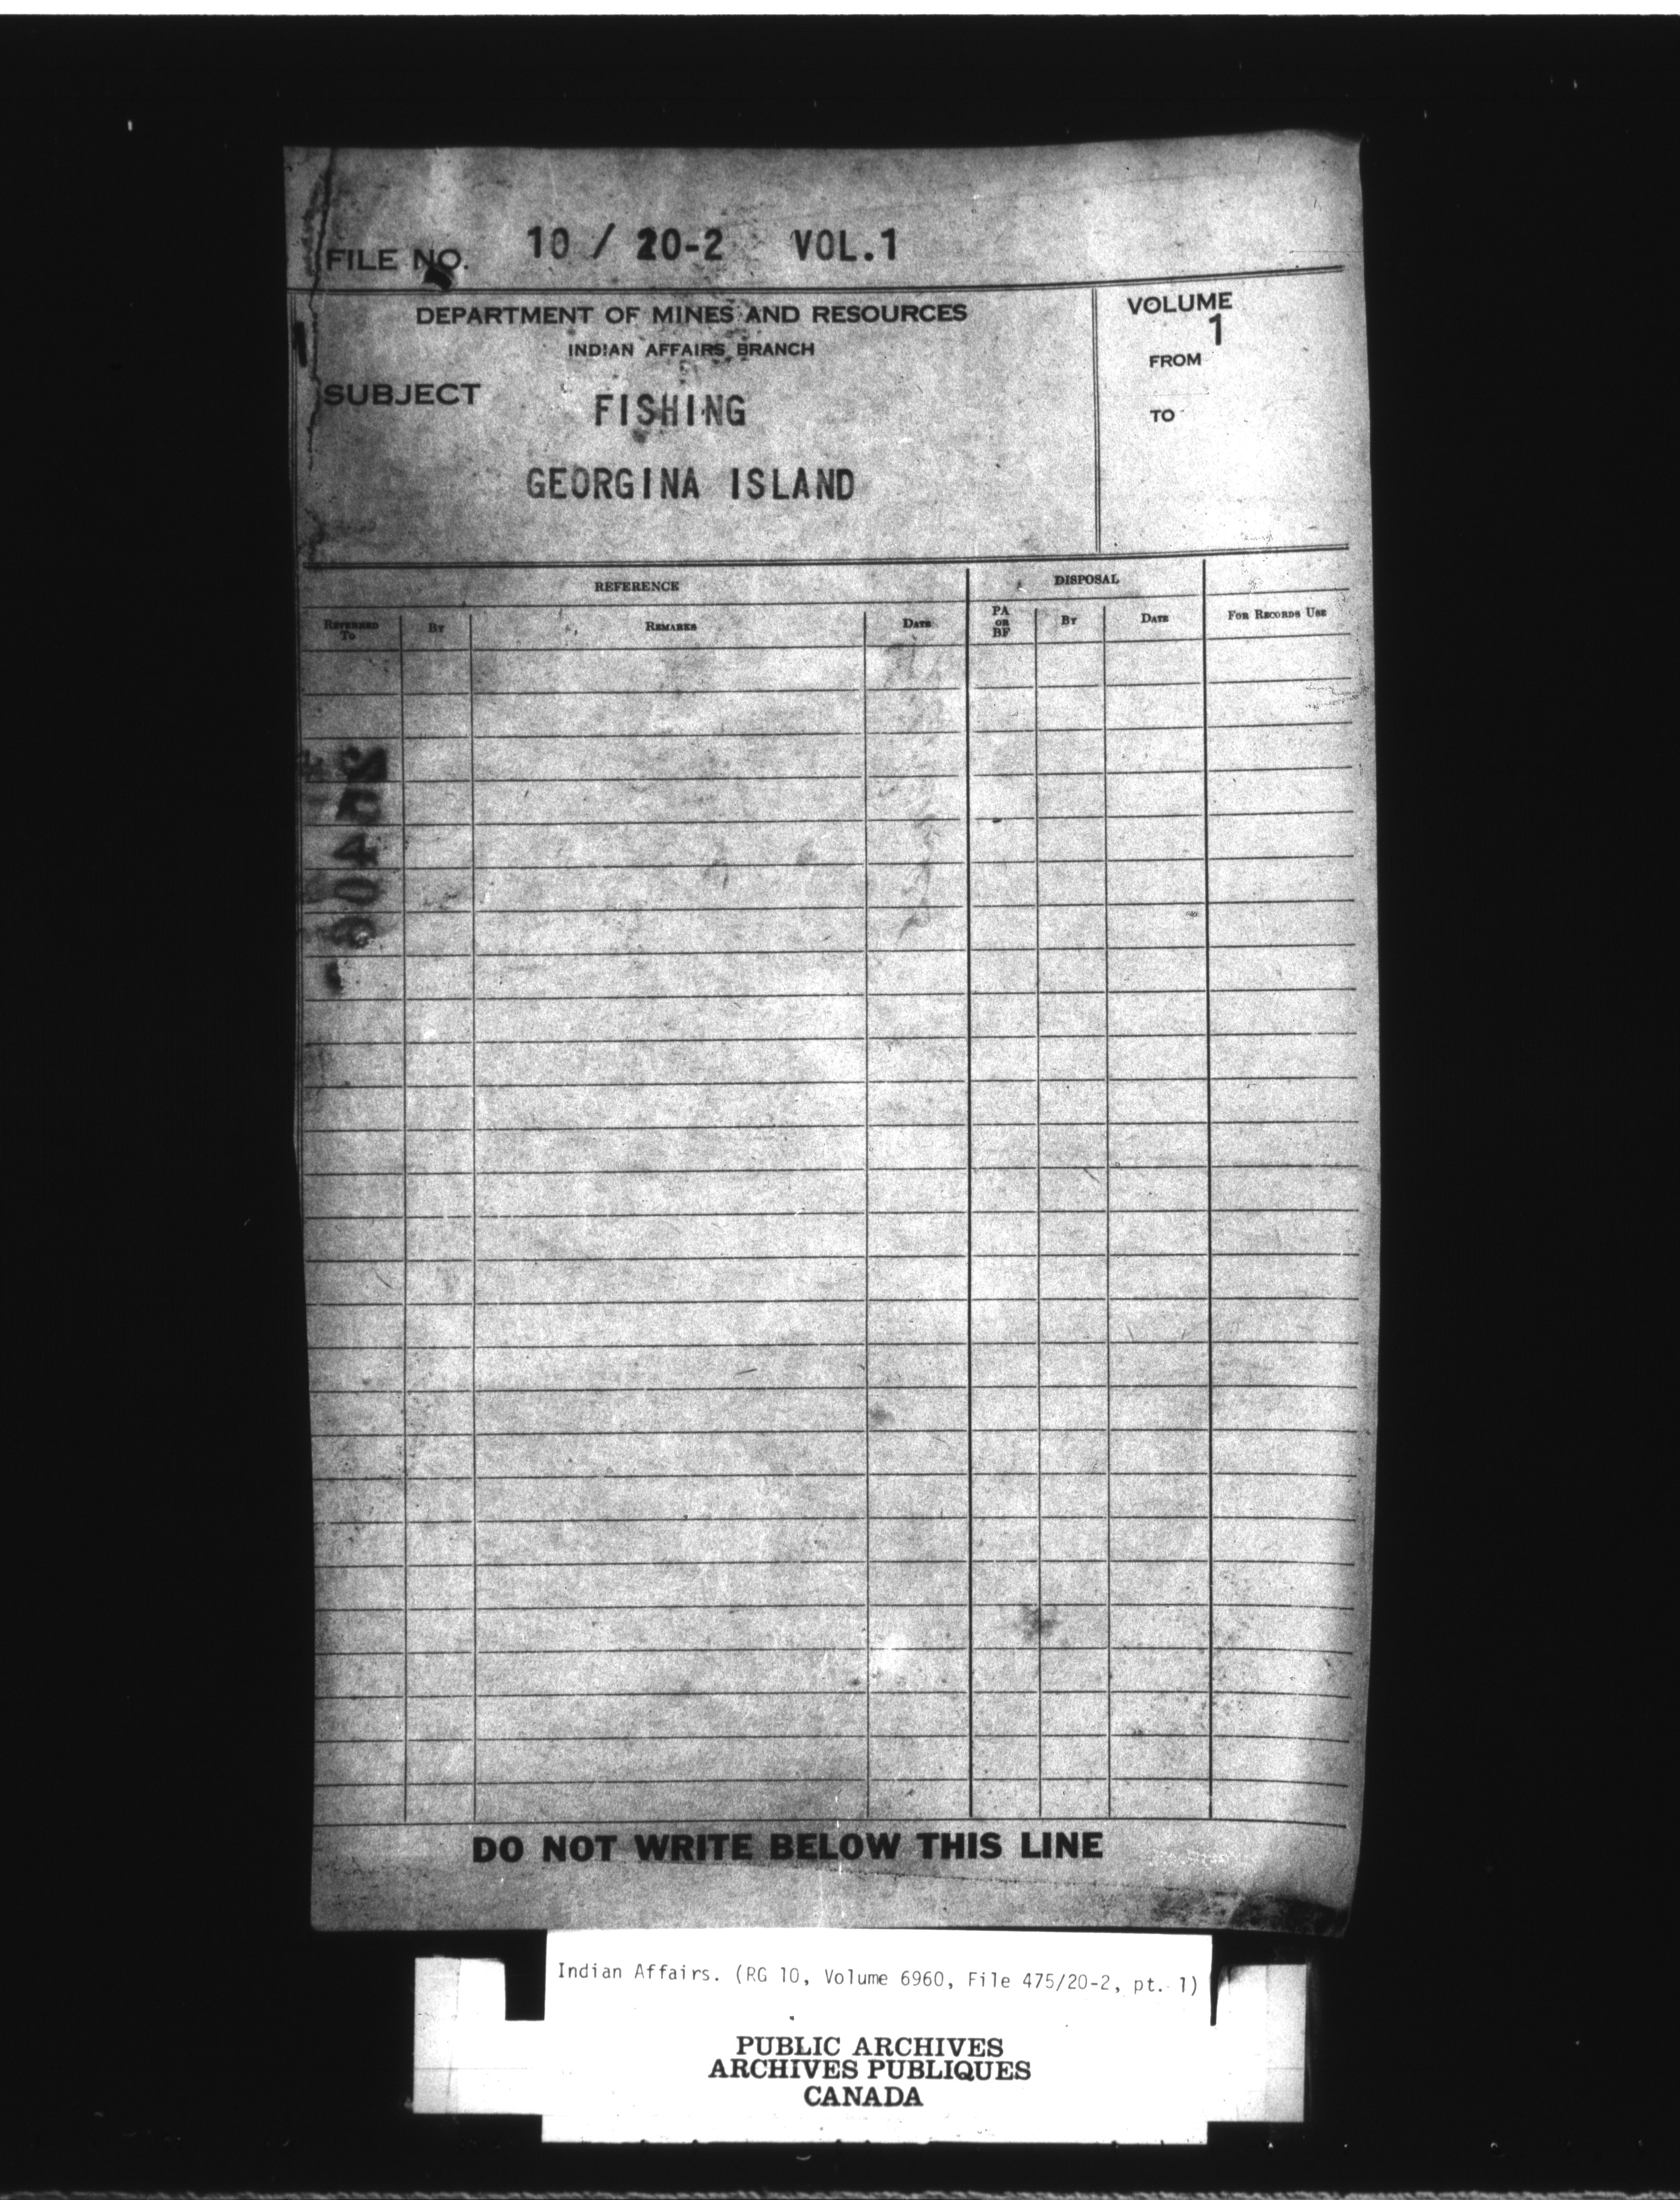 FILE NO. 10 / 20-2 VOL.1
DEPARTMENT OF MINES AND RESOURCES
INDIAN AFFAIRS BRANCH
SUBJECT FISHING
GEORGINA ISLAND
VOLUME
1
FROM
TO
REFERENCE DISPOSAL
REFERRED TO BY REMARKS DATE PA OR BF BY DATE FOR RECORDS USE
DO NOT WRITE BELOW THIS LINE
Indian Affairs. (RG 10, Volume 6960, File 475/20-2, pt. 1)
PUBLIC ARCHIVES
ARCHIVES PUBLIQUES
CANADA